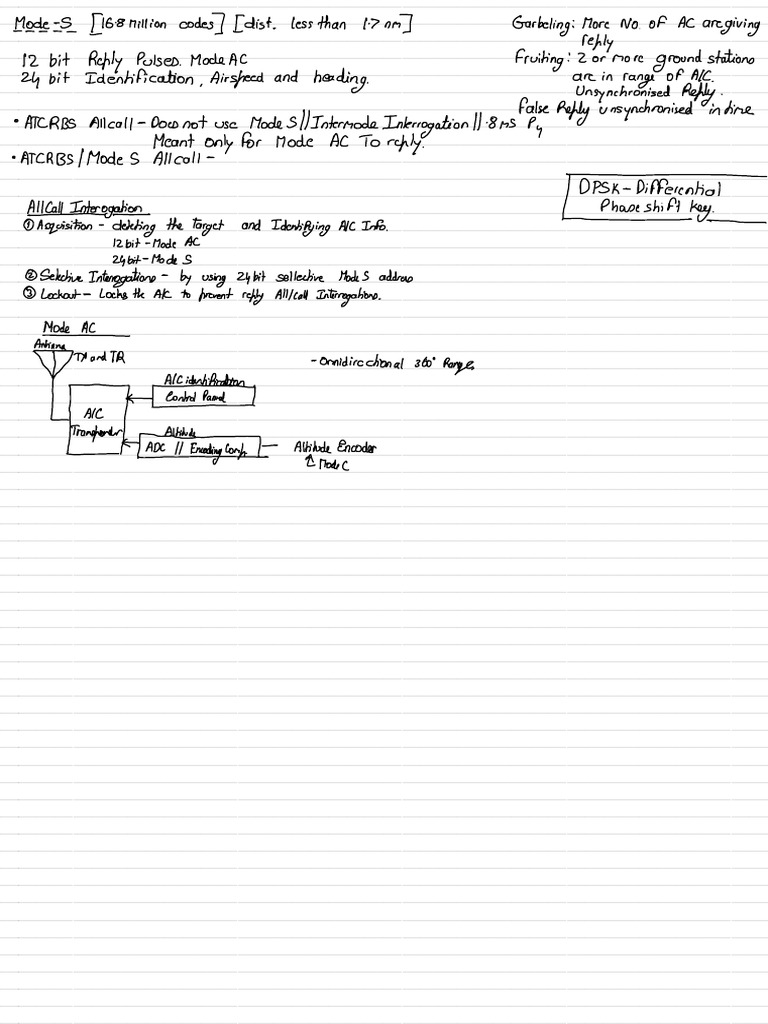 Mode-S [16.8 Million codes] [dist. less than 1.7 nm]
12 bit Reply Pulsed. Mode AC
24 bit Identification, Airspeed and heading.
Garbeling: More No. of AC are giving
reply
Fruiting: 2 or more ground stations
are in range of A/C.
Unsynchronised Reply.
False Reply unsynchronised in time
• ATCRBS Allcall - Does not use Mode S // Intermode Interrogation // .8 MS P4
Meant only for Mode AC To reply.
• ATCRBS / Mode S Allcall -
DPSK - Differential
Phase shift key.
AllCall Interogation
① Aquisition - detecting the Target and Identifying A/C Info.
12 bit - Mode AC
24 bit - Mode S
② Selective Interrogations - by using 24 bit sellective Mode S address
③ Lockout - Locks the A/C to prevent reply All/call Interrogations.
Mode AC
Antenna
TX and TR
- Omnidirectional 360° Range
A/C identification
Control Panel
A/C
Transponder
Altitude
ADC // Encoding Comp.
Altitude Encoder
↑ Mode C